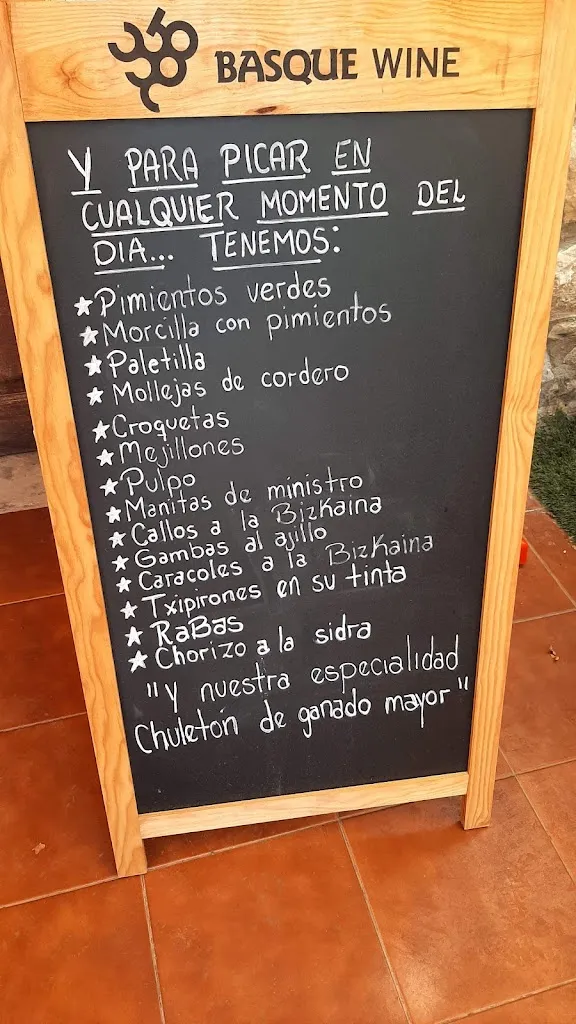 BASQUE WINE
Y PARA PICAR EN
CUALQUIER MOMENTO DEL
DIA... TENEMOS:
★Pimientos verdes
★Morcilla con pimientos
★Paletilla
★Mollejas de cordero
★Croquetas
★Mejillones
★Pulpo
★Manitas de ministro
★Callos a la Bizkaina
★Gambas al ajillo
★Caracoles a la Bizkaina
★Txipirones en su tinta
★RaBas
★Chorizo a la sidra
"Y nuestra especialidad
Chuletón de ganado mayor"